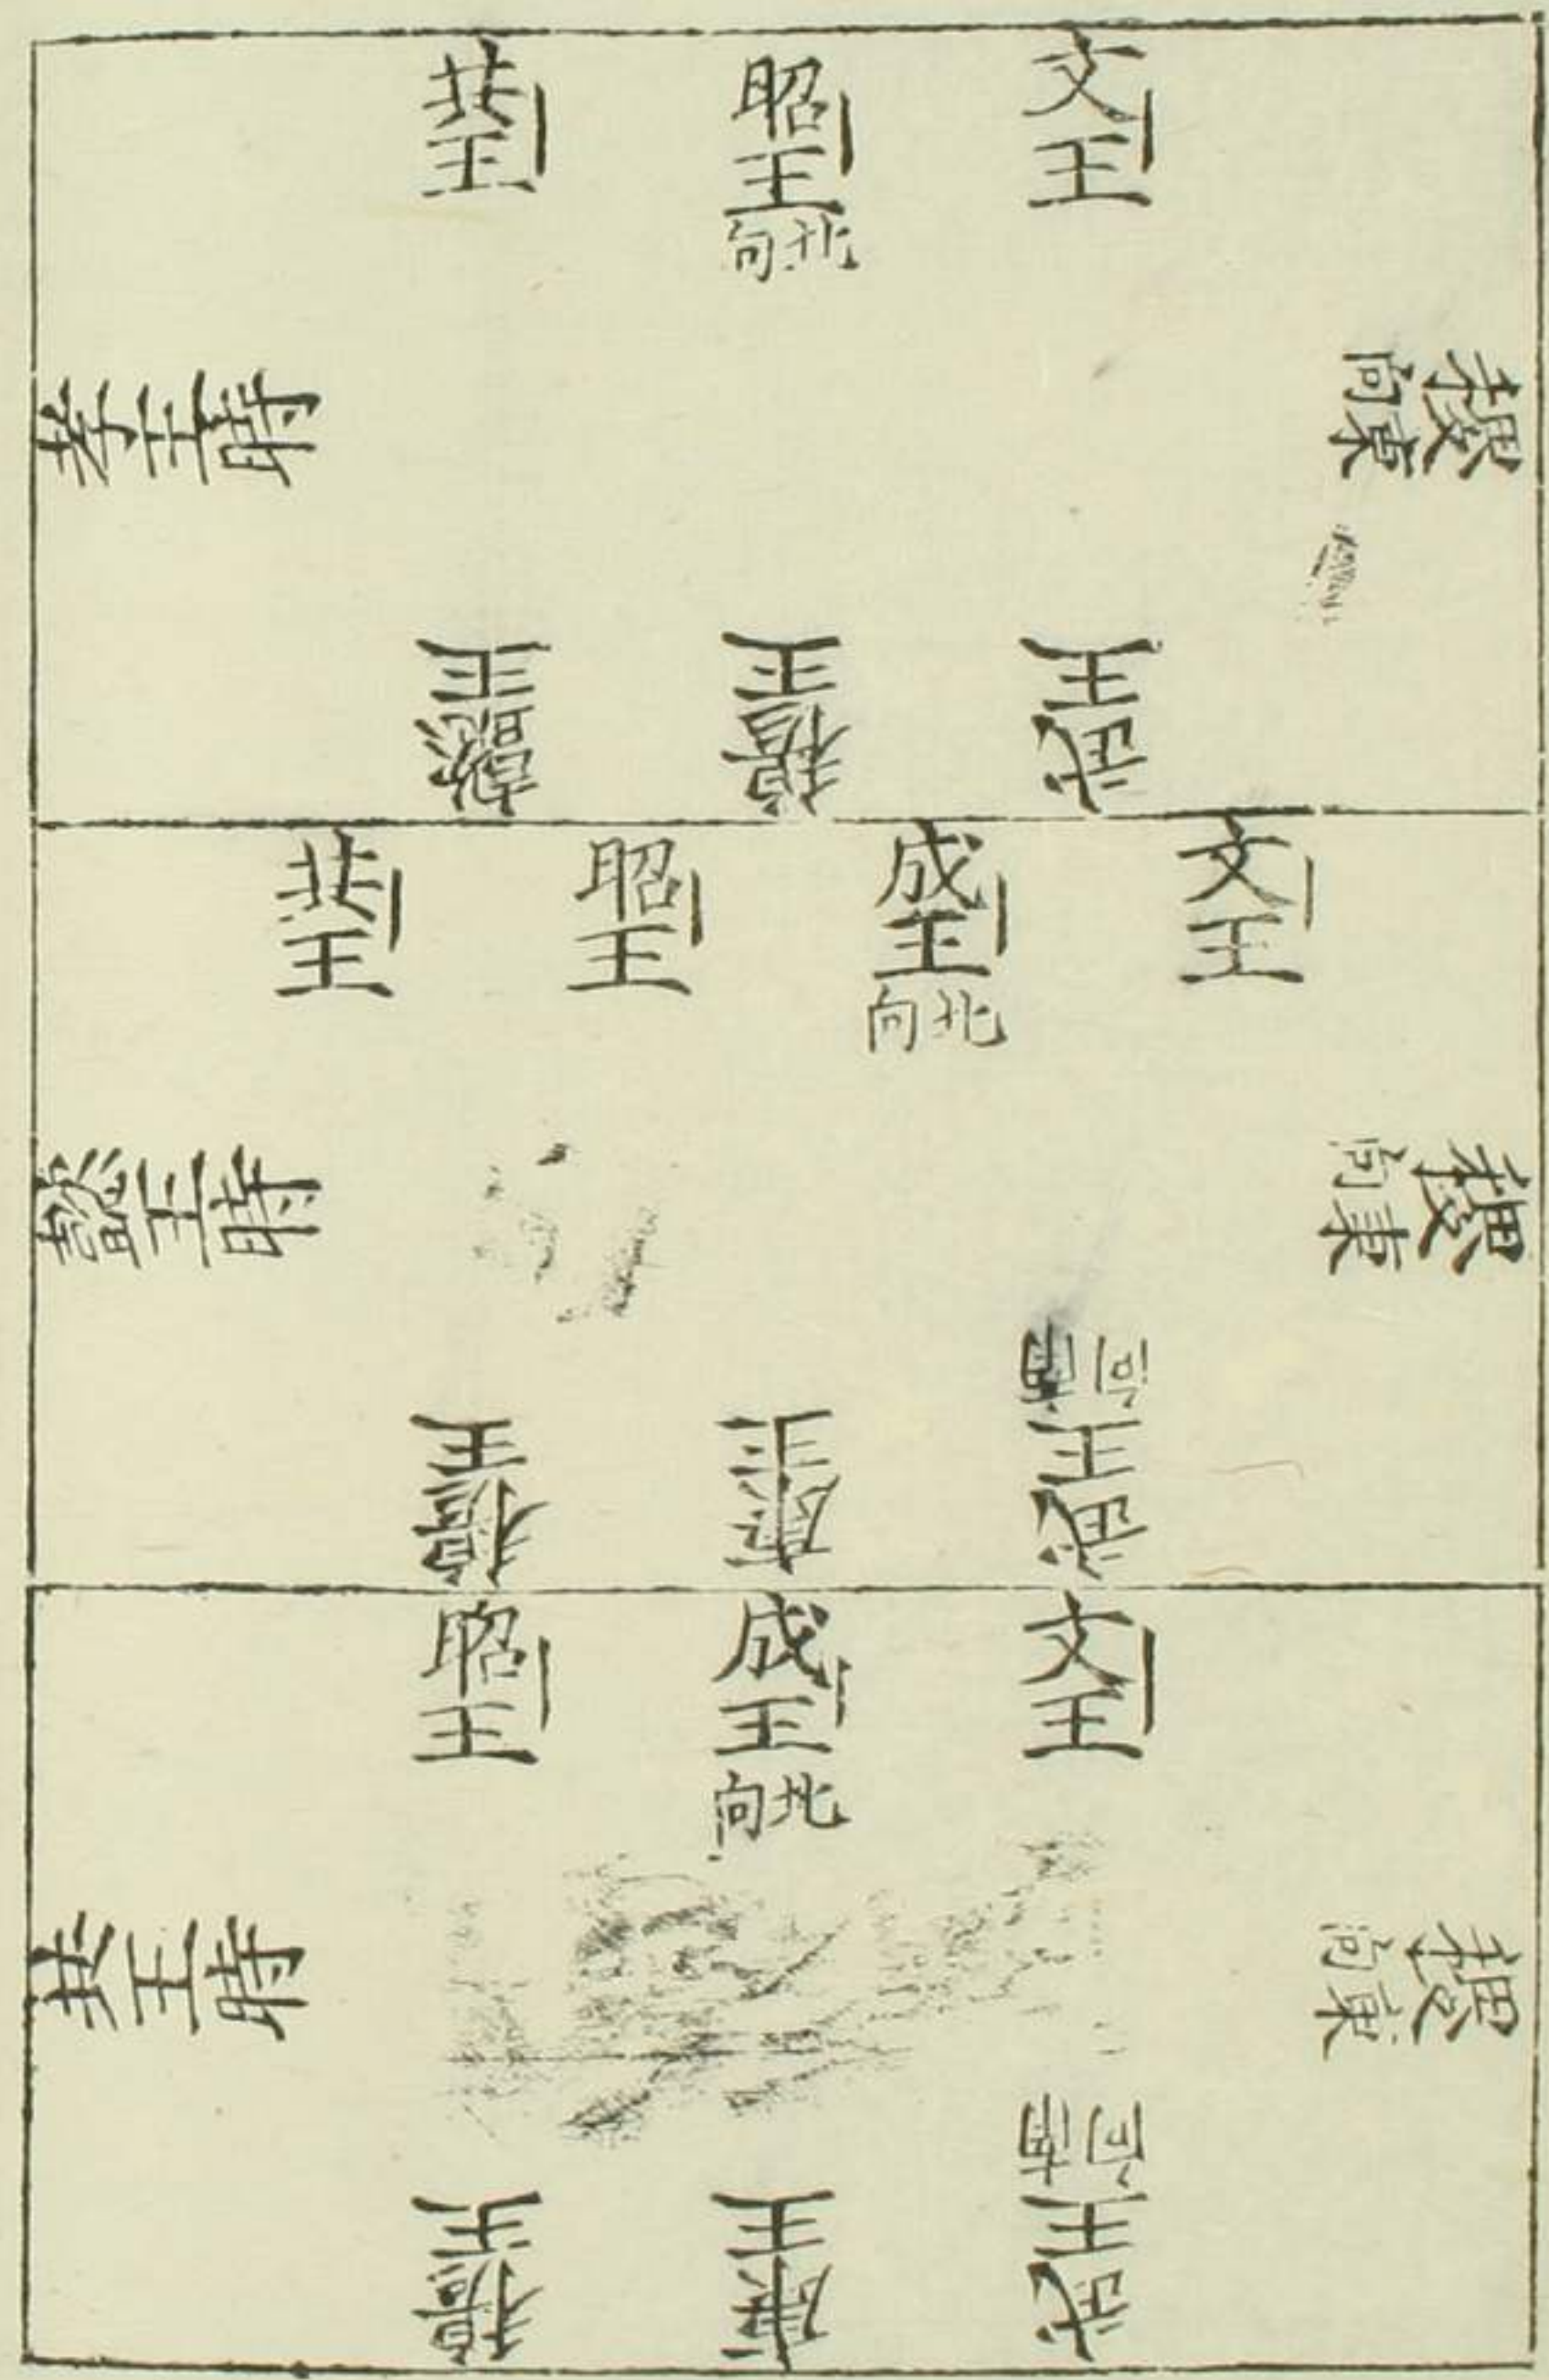 孝王時
稷
東向
文王
昭王
北向
共王
武王
穆王
懿王
懿王時
稷
東向
文王
成王
北向
昭王
共王
武王
南向
康王
穆王
共王時
稷
東向
文王
成王
北向
昭王
武王
南向
康王
穆王